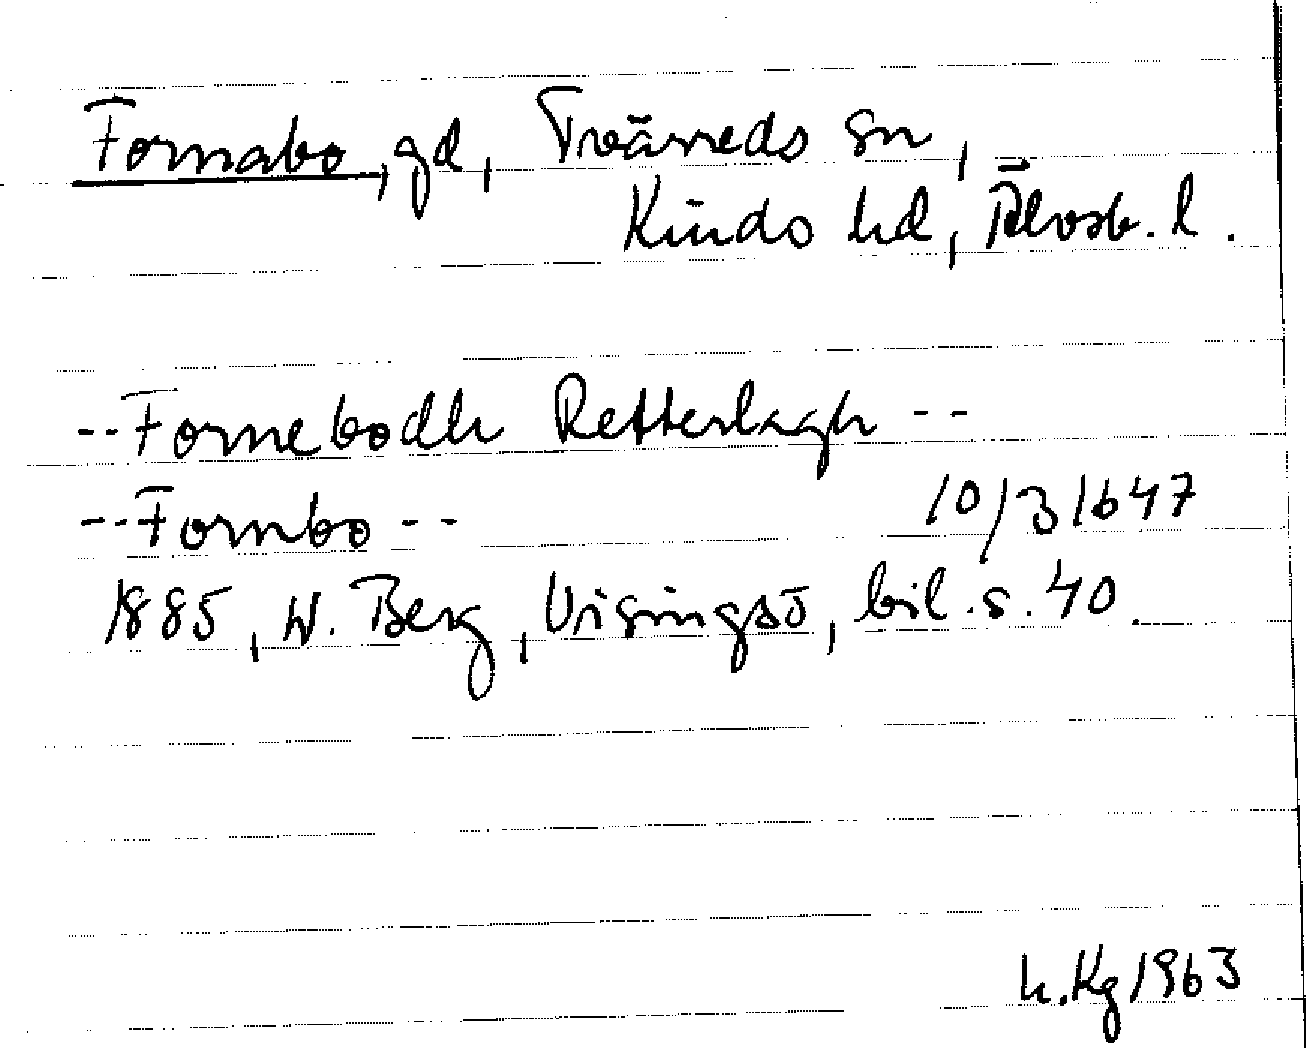 Fornabo, gd, Tvärreds sn,
Kinds hd, Älvsb. l.
--Fornebodh Retterlagh--
--Fornbo-- 10/3 1647
1885, W. Berg, Visingsö, bil. s. 40.
h. Kg 1963